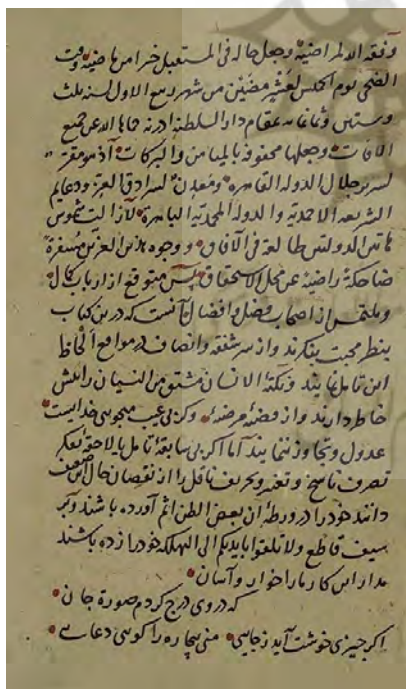 وفقه الله لمراضیه وجعل حاله فی المستقبل خیرا من ماضیه وقت
الضحی یوم الخمیس لعشر مضین من شهر ربیع الاول لسنه ثلث
وستین وثمانمایه بمقام دار السلطنه ادرنه حماها الله عن جمیع
الافات وجعلها محفوفه بالمیامن والبرکات اذ هو مقر
لسریر جلال الدوله القاهره ومعدن لسرادق العز ودعایم
الشریعه الاحمدیه والدوله المحمدیه الباهره لازالت شموس
هاتین الدولتین طالعة فی الآفاق ووجوه هذین العزین مسفرة
ضاحکة راضیة عن نحل الاستحقاق پس متوقع از ارباب کمال
وملتمس از اصحاب فضل وافضال آنست که درین کتاب
بنظر محبت بنگرند واز سر شفقه وانصاف در مواقع الحاظ
این تامل نمایند ونکتهٔ الانسان مشتق من النسیان را نقش
خاطر دارند واز قضیهٔ مرضیهٔ وکر بی عیب میجویی خداست
عدول وتجاوز ننمایند اما اکر بی سابقهٔ تامل یا لاحقهٔ تفکر
تصرف ناسخ وتغییر وتحریف ناقل را از نقصان حال این ضعیف
دانند خود را در ورطهٔ ان بعض الظن اثم آورده باشند وبر
سیف قاطع ولا تلقوا بایدیکم الی التهلکه خود را زده باشند
مدار این کار مارا خوار وآسان
که در وی درج کردم صورة جان
اکر چیزی خوشت آید زجایی منی بیچاره را کویی دعایی